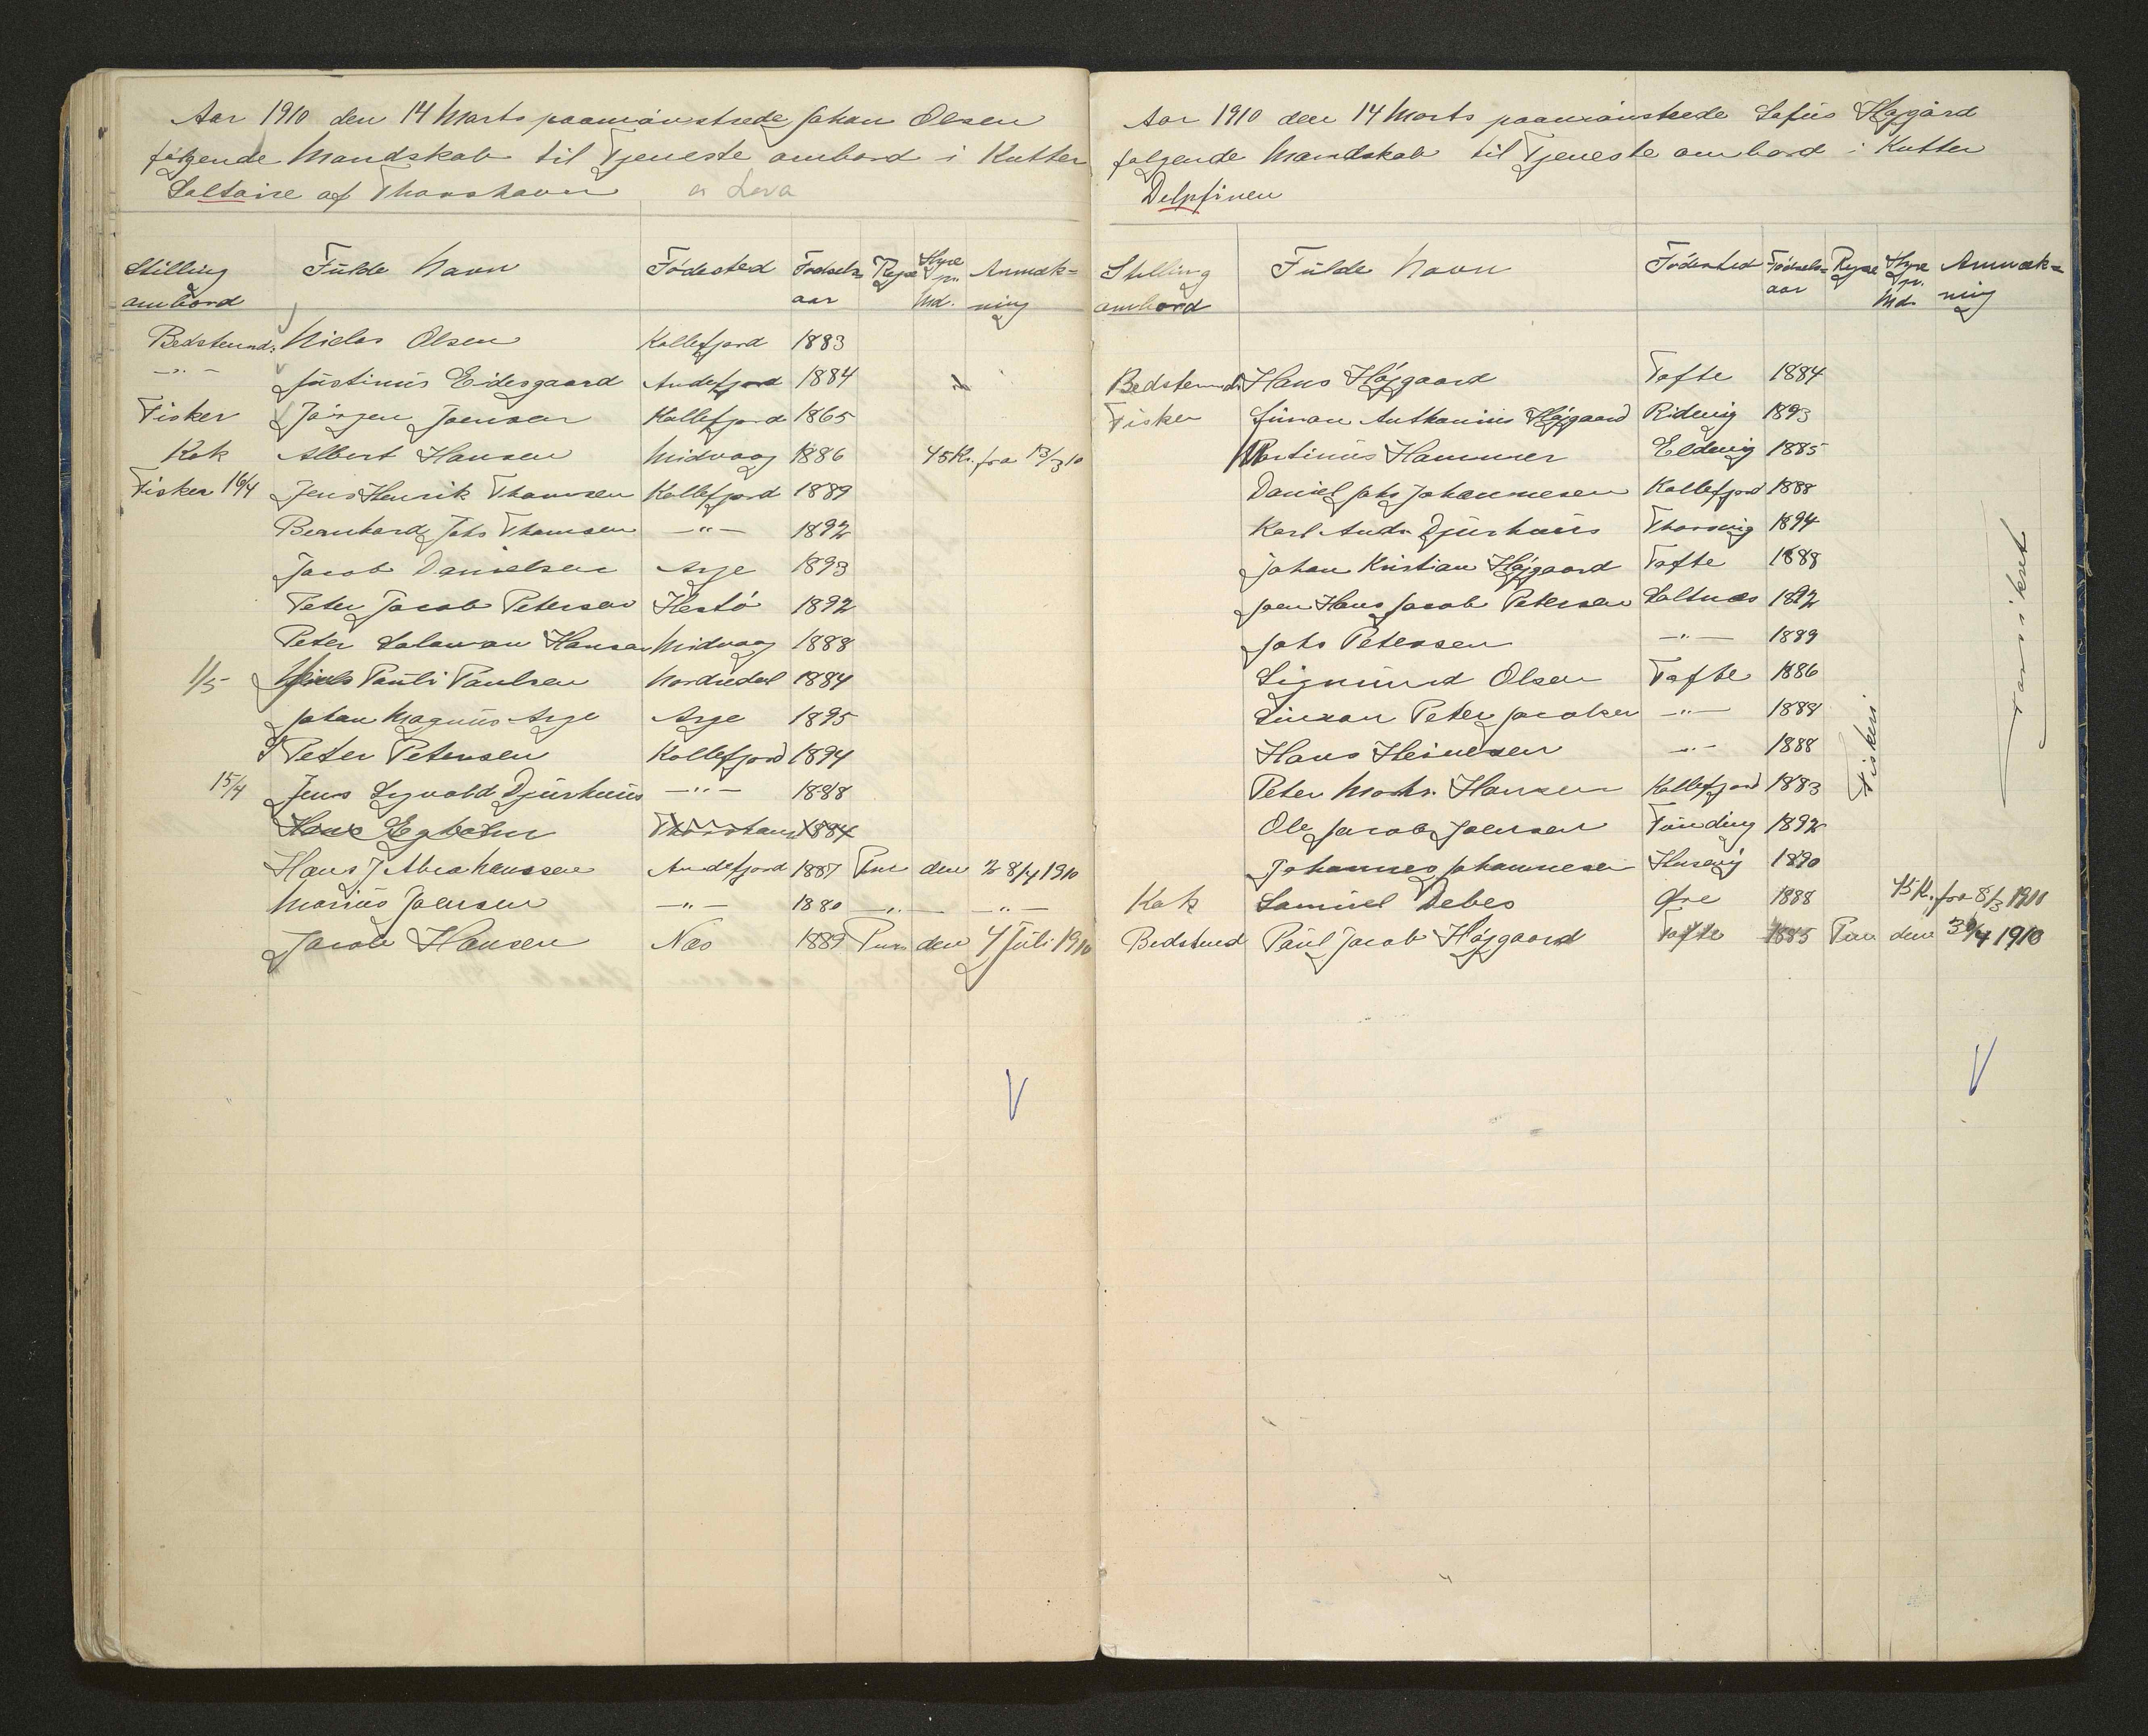 Aar 1910 den 14 Marts paamönstrede Johan Olsen
følgende Mandskab til Tjeneste ombord i Kutter
Saltaire af Thorshavn
Stilling ombord Fulde Navn Fødested Fødsels- aar Rejse Hyre pr. Md. Anmærk- ning
Bedstemd. Niclas Olsen Kollefjord 1883
-"- Justinus Eidesgaard Andefjord 1884
Fisker Jörgen Joensen Kollefjord 1865
Kok Albert Hansen Midvaag 1886 45 Kr. fra 13/3 10
Fisker 16/4 Jens Henrik Thomsen Kollefjord 1889
Bernhard Johs Thomsen -"- 1892
Jacob Danielsen Arge 1893
Peter Jacob Petersen Hestö 1892
Peter Salamon Hansen Midvaag 1888
1/5 Niels Pauli Paulsen Nordredal 1884
Johan Magnus Arge Arge 1895
Peter Petersen Kollefjord 1894
15/4 Jens Sigvald Djurhuus -"- 1888
Hans Egholm Thorshavn 1884
Hans J Abrahamsen Andefjord 1887 den 28/4 1910
Marius Joensen -"- 1880 -"- -"-
Jacob Hansen Næs 1889 den 4 Juli 1910
Aar 1910 den 14 Marts paamönstrede Sofus Højgård
følgende Mandskab til Tjeneste ombord i Kutter
Delpfinen
Stilling ombord Fulde Navn Fødested Fødsels- aar Rejse Hyre pr. Md. Anmærk- ning
Bedstemd. Hans Højgaard Tofte 1884
Fisker Simon Anthonius Højgaard Ridevig 1893
Martinus Hammer Eldevig 1885
Daniel Johs Johannesen Kollefjord 1888
Karl Andr. Djurhuus Thorsvig 1894
Johan Kristian Højgaard Tofte 1888
Joen Hans Jacob Petersen Saltnæs 1892
Johs Petersen -"- 1889
Sigmund Olsen Tofte 1886
Simon Peter Jacobsen -"- 1889
Hans Heinesen -"- 1888
Peter Mortn. Hansen Kollefjord 1883
Ole Jacob Joensen Funding 1892
Johannes Johannesen Husevig 1890
Kok Samuel Debes Øre 1888 45 Kr. fra 8/3 1910
Bedstemd Paul Jacob Højgaard Tofte 1885 den 30/4 1910
Fiskeri